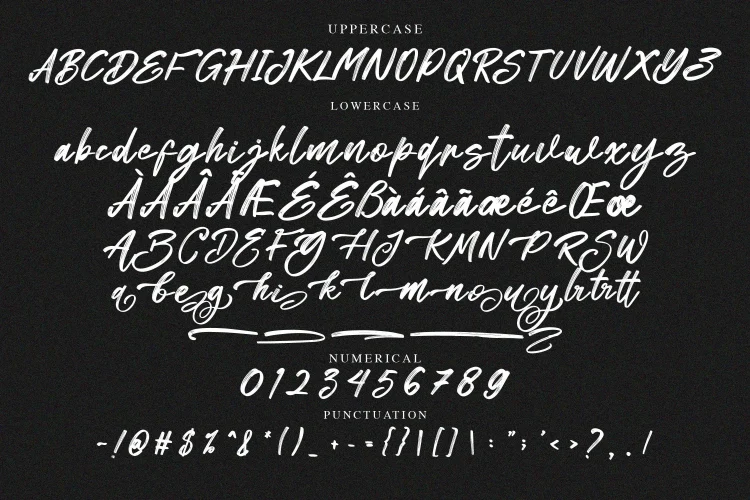 UPPERCASE
ABCDEFGHIJKLMNOPQRSTUVWXYZ
LOWERCASE
abcdefghijklmnopqrstuvwxyz
ÀÁÂÃÆÉÊBàáâãæéêŒœ
ABCDEFGHJKMNPRSW
abeghiklmnouylrtrtt
NUMERICAL
0123456789
PUNCTUATION
~!@#$%^&*()_+-={}|[]\:";'<>?,./